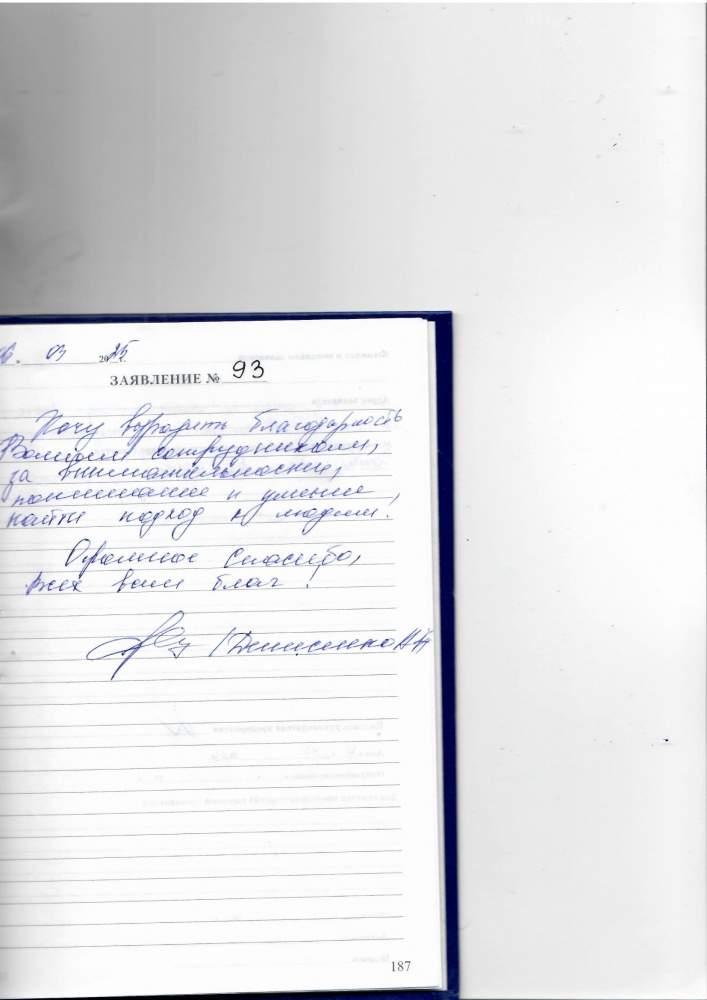 6. 03 2025
ЗАЯВЛЕНИЕ № 93
Хочу выразить благодарность
Вашим сотрудникам,
за внимательность,
понимание и умение,
найти подход к людям.
Огромное спасибо,
всех вам благ!
/Денисенко
187